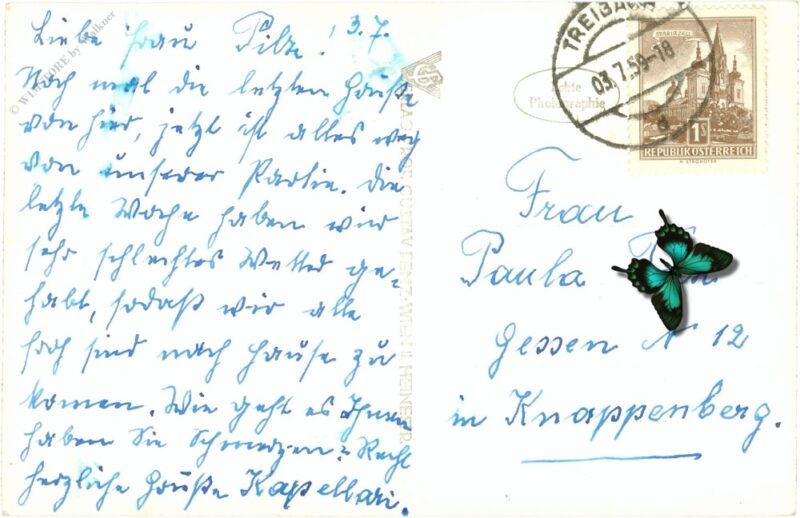 Liebe Frau Pilze! 3.7.
Noch mal die letzten Grüße
von hier, jetzt ist alles weg
von unserer Partie. Die
letzte Woche haben wir
sehr schlechtes Wetter ge-
habt, sodaß wir alle
froh sind nach Hause zu
komen. Wie geht es Ihnen
haben Sie Schmerzen? Recht
herzliche Grüße Kapellari.
© WEBSTORE by Falkner
Echte
Photographie
TREIBACH
03.7.59-18
a
MARIAZELL
1S
REPUBLIK ÖSTERREICH
Frau
Paula
Gossen N 12
in Knappenberg.